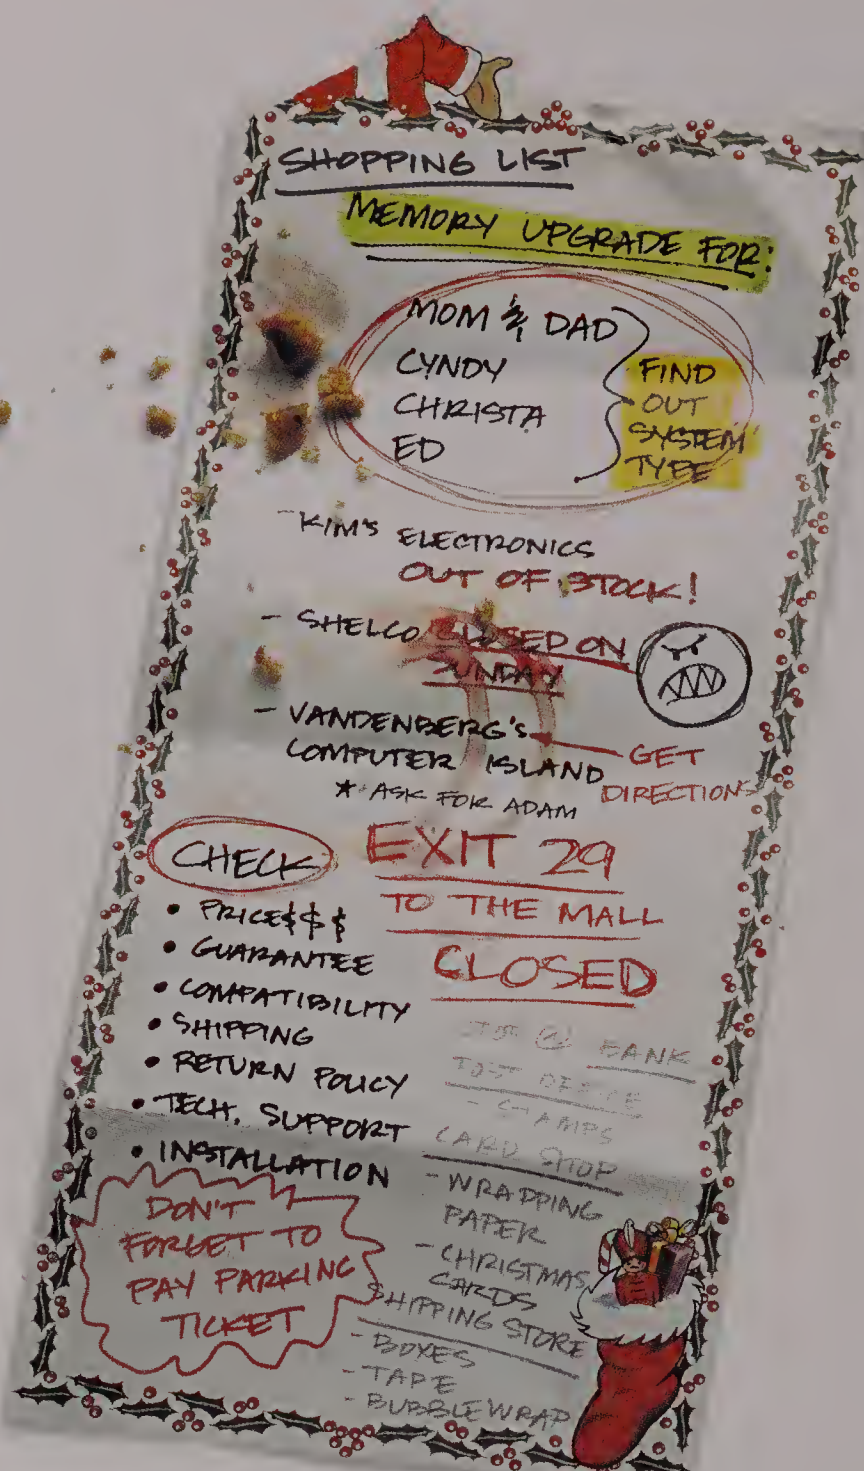 SHOPPING LIST
MEMORY UPGRADE FOR:
MOM & DAD
CYNDY
CHRISTA
ED
FIND
OUT
SYSTEM
TYPE
- KIM'S ELECTRONICS
OUT OF STOCK!
- SHELCO CLOSED ON
SUNDAY
- VANDENBERG'S
COMPUTER ISLAND
★ ASK FOR ADAM
GET
DIRECTIONS
CHECK
• PRICE$$$
• GUARANTEE
• COMPATIBILITY
• SHIPPING
• RETURN POLICY
• TECH. SUPPORT
• INSTALLATION
EXIT 29
TO THE MALL
CLOSED
STOP @ BANK
POST OFFICE
- STAMPS
CARD SHOP
- WRAPPING
PAPER
- CHRISTMAS
CARDS
SHIPPING STORE
- BOXES
- TAPE
- BUBBLEWRAP
DON'T
FORGET TO
PAY PARKING
TICKET